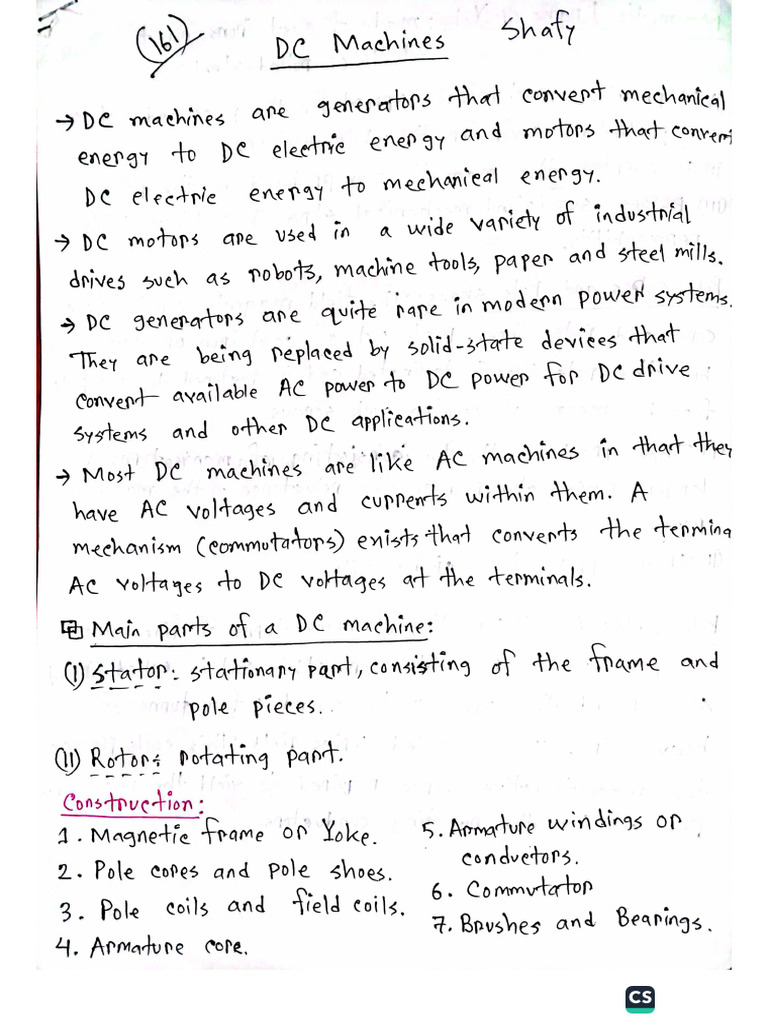 (161) DC Machines Shafy
→ DC machines are generators that convert mechanical
energy to DC electric energy and motors that convert
DC electric energy to mechanical energy.
→ DC motors are used in a wide variety of industrial
drives such as robots, machine tools, paper and steel mills.
→ DC generators are quite rare in modern power systems.
They are being replaced by solid-state devices that
convert available AC power to DC power for DC drive
systems and other DC applications.
→ Most DC machines are like AC machines in that they
have AC voltages and currents within them. A
mechanism (commutators) exists that converts the termina
AC voltages to DC voltages at the terminals.
Main parts of a DC machine:
(I) Stator: stationary part, consisting of the frame and
pole pieces.
(II) Rotor: rotating part.
Construction:
1. Magnetic frame or Yoke.
2. Pole cores and pole shoes.
3. Pole coils and field coils.
4. Armature core.
5. Armature windings or
conductors.
6. Commutator
7. Brushes and Bearings.
CS